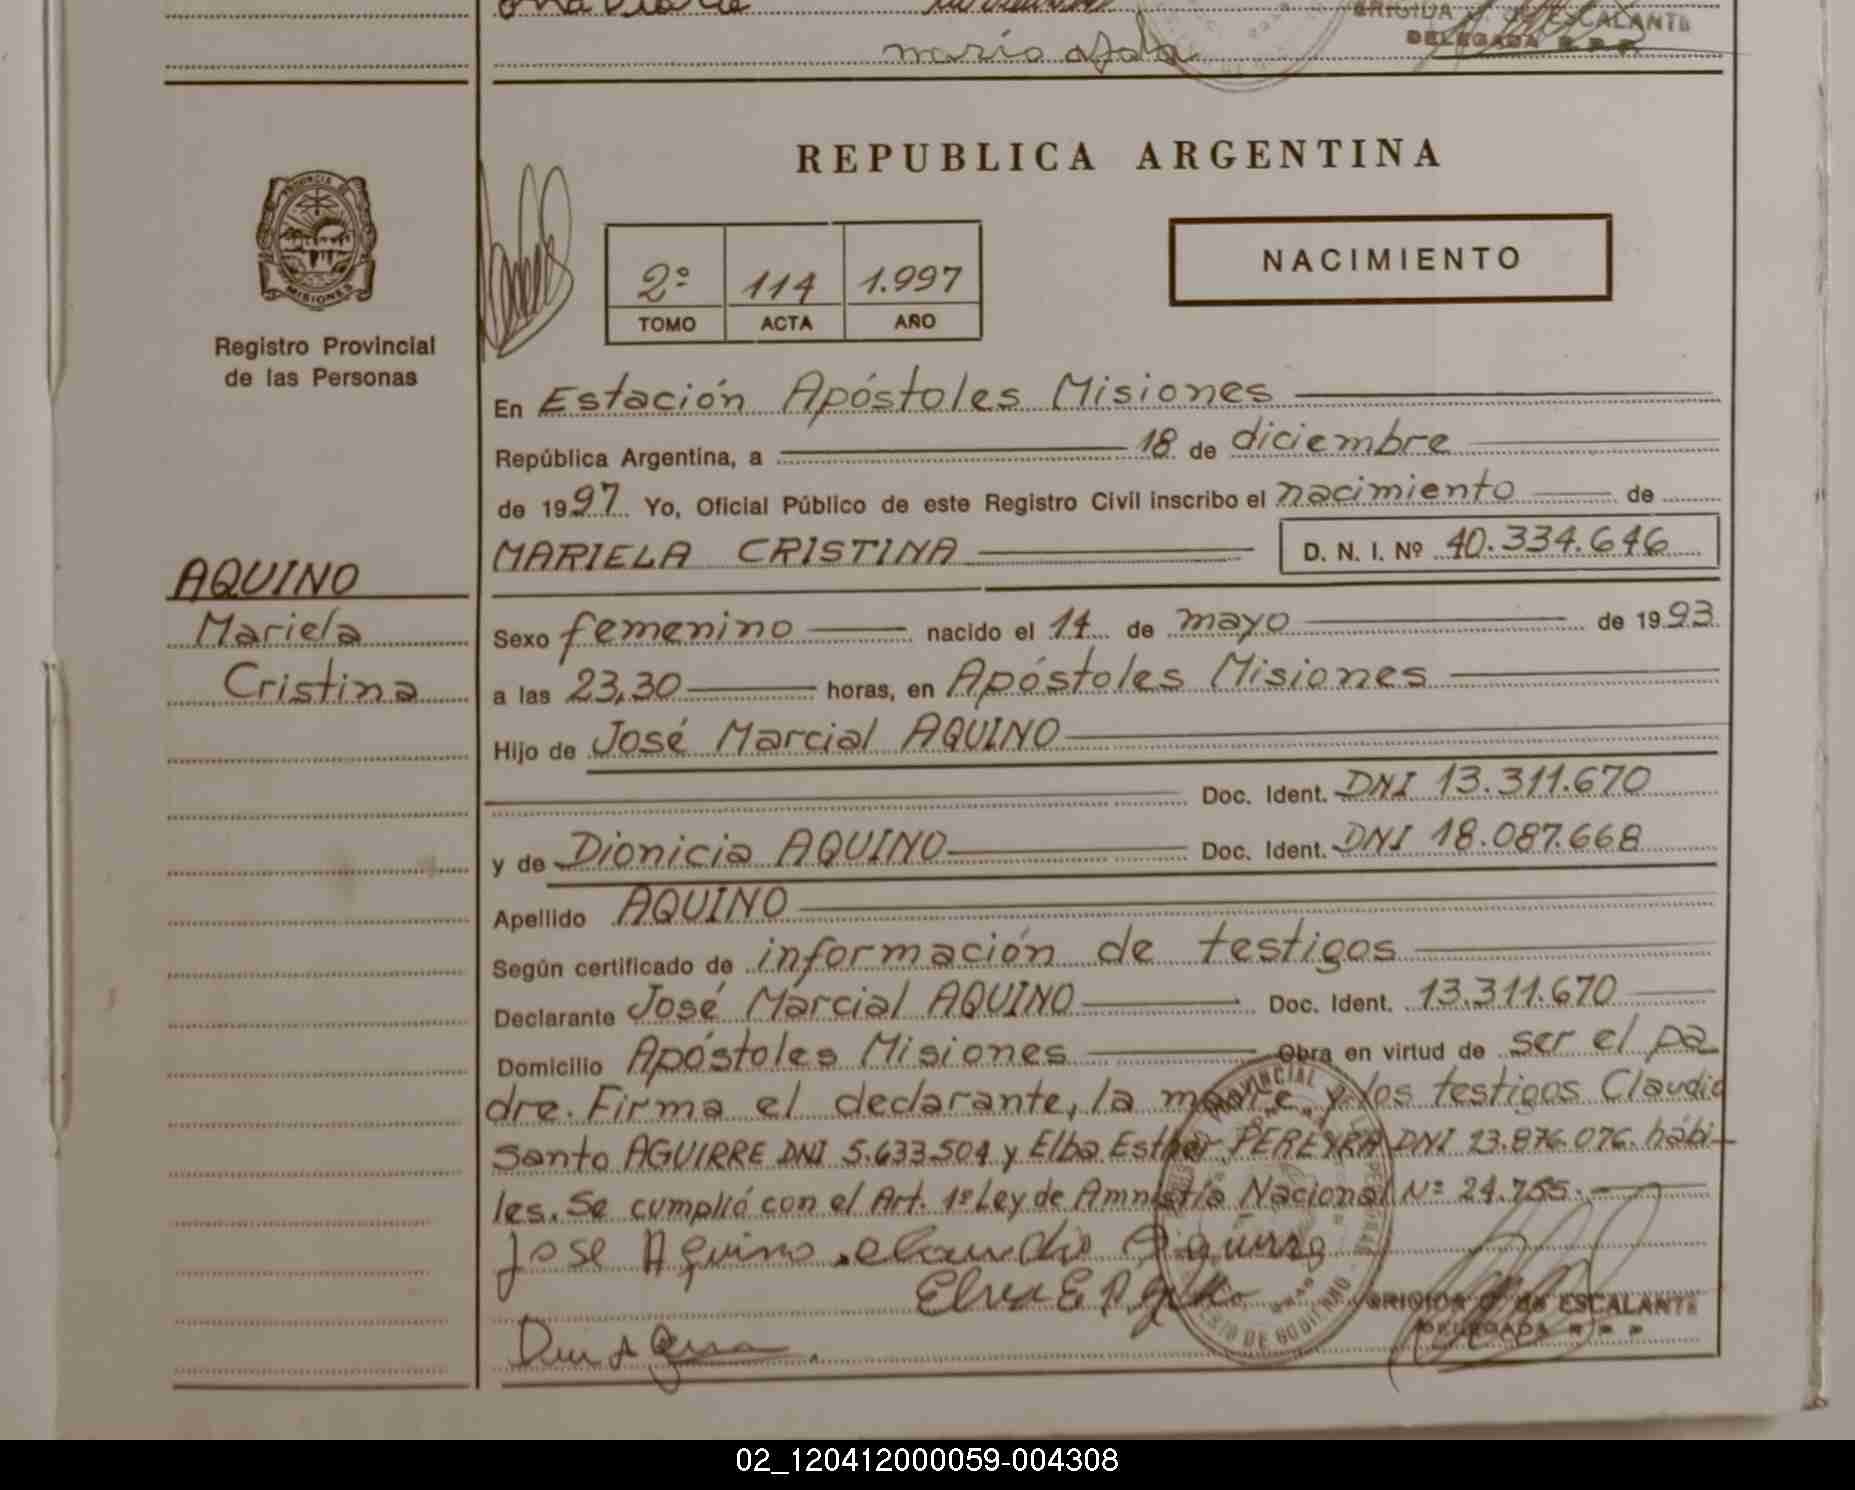 BRIGIDA G. de ESCALANTE
DELEGADA R.P.P.
PROVINCIA DE
MISIONES
Registro Provincial
de las Personas
REPUBLICA ARGENTINA
2º 114 1.997
TOMO ACTA AÑO
NACIMIENTO
En Estación Apóstoles Misiones
República Argentina, a 18 de diciembre
de 1997 Yo, Oficial Público de este Registro Civil inscribo el nacimiento de
MARIELA CRISTINA D. N. I. Nº 40.334.646
AQUINO
Mariela
Cristina
Sexo femenino nacido el 14 de mayo de 1993
a las 23,30 horas, en Apóstoles Misiones
Hijo de José Marcial AQUINO
Doc. Ident. DNI 13.311.670
y de Dionicia AQUINO Doc. Ident. DNI 18.087.668
Apellido AQUINO
Según certificado de información de testigos
Declarante José Marcial AQUINO Doc. Ident. 13.311.670
Domicilio Apóstoles Misiones Obra en virtud de ser el pa
dre. Firma el declarante, la madre y los testigos Claudio
Santo AGUIRRE DNI 5.633.504 y Elba Esther PEREYRA DNI 13.876.076. hábi-
les. Se cumplió con el Art. 1º Ley de Amnistía Nacional Nº 24.755.
Jose Aquino
BRIGIDA G. de ESCALANTE
DELEGADA R.P.P.
02_120412000059-004308